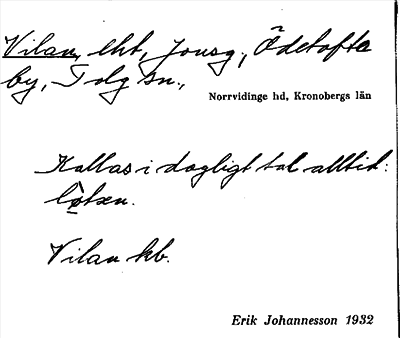 Vilan, lht, Jonsg, Ödetofta
by, Tolg sn.,
Norrvidinge hd, Kronobergs län
Kallas i dagligt tal alltid:
Vilan kb.
Erik Johannesson 1932